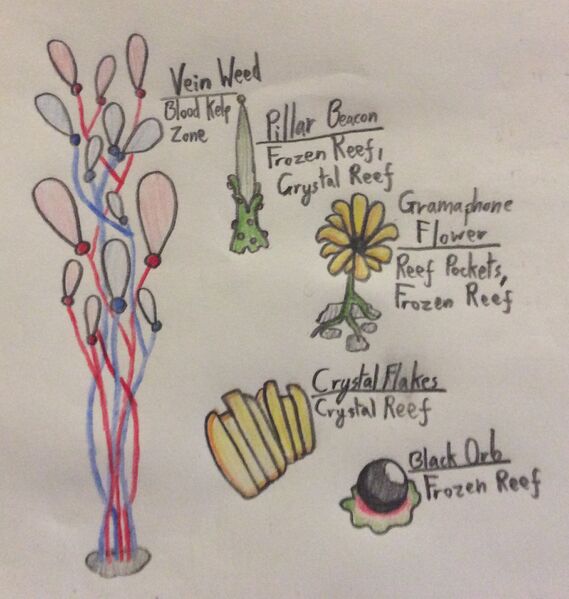 Vein Weed
Blood Kelp
Zone
Pillar Beacon
Frozen Reef,
Crystal Reef
Gramaphone
Flower
Reef Pockets,
Frozen Reef
Crystal Flakes
Crystal Reef
Black Orb
Frozen Reef